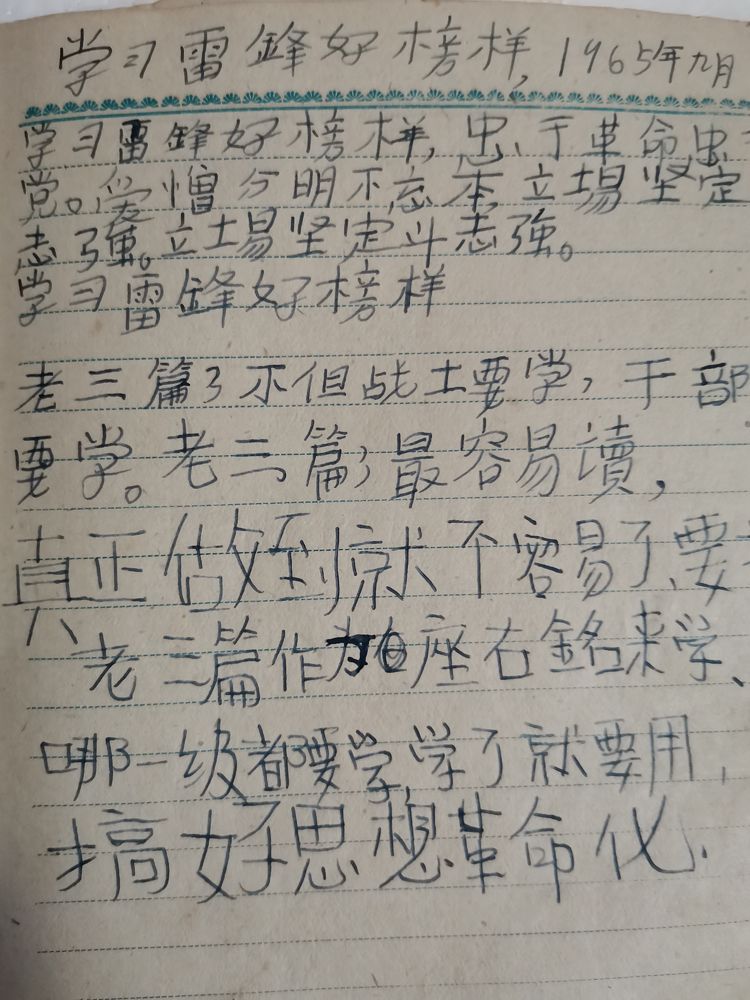 学习雷鋒好榜样, 1965年九月
学习雷鋒好榜样, 忠于革命忠
党。爱憎分明不忘本, 立場坚定
志強。立場坚定斗志強。
学习雷鋒好榜样
老三篇, 不但战士要学, 干部
要学。老三篇, 最容易讀,
真正做到就不容易了, 要
老三篇作为座右銘来学、
哪一级都要学, 学了就要用,
搞好思想革命化.